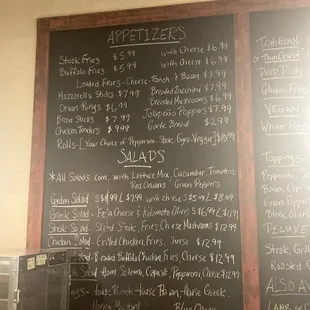 APPETIZERS
Steak Fries $5.99 with Cheese $6.99
Buffalo Fries $5.99 with Cheese $6.99
Loaded Fries - Cheese - Ranch & Bacon $7.99
Mozzarella Sticks $7.99 Breaded Zucchini $7.99
Onion Rings $6.99 Breaded Mushrooms $6.99
Bread Sticks $7.99 Jalapeno Poppers $7.99
Chicken Tenders $9.99 Garlic Bread $2.99
Rolls - [Your Choice of Pepperoni - Steak - Gyro - Veggie]
SALADS
*All Salads Come with Lettuce Mix, Cucumber, Tomatoes,
Red Onions Green Peppers
Garden Salad with cheese
Greek Salad - Feta Cheese & Kalamata Olives
Steak Salad - Sliced Steak, Fries, Cheese, Mushrooms $12.99
Chicken Salad - Grilled Chicken, Fries, Cheese $12.99
Salad - Breaded Buffalo Chicken, Fries, Cheese $12.99
Salad - Ham, Salami, Capicola, Pepperoni, Cheese
Ranch - House Italian - House Greek,
Honey Mustard
Traditional
or Thin Crust
Deep Dish
Gluten Free
VEGAN
White
Toppings
Pepperoni
Bacon
Green Pepper
Black Olives
DELUXE
Steak, Grill
Roasted
ALSO